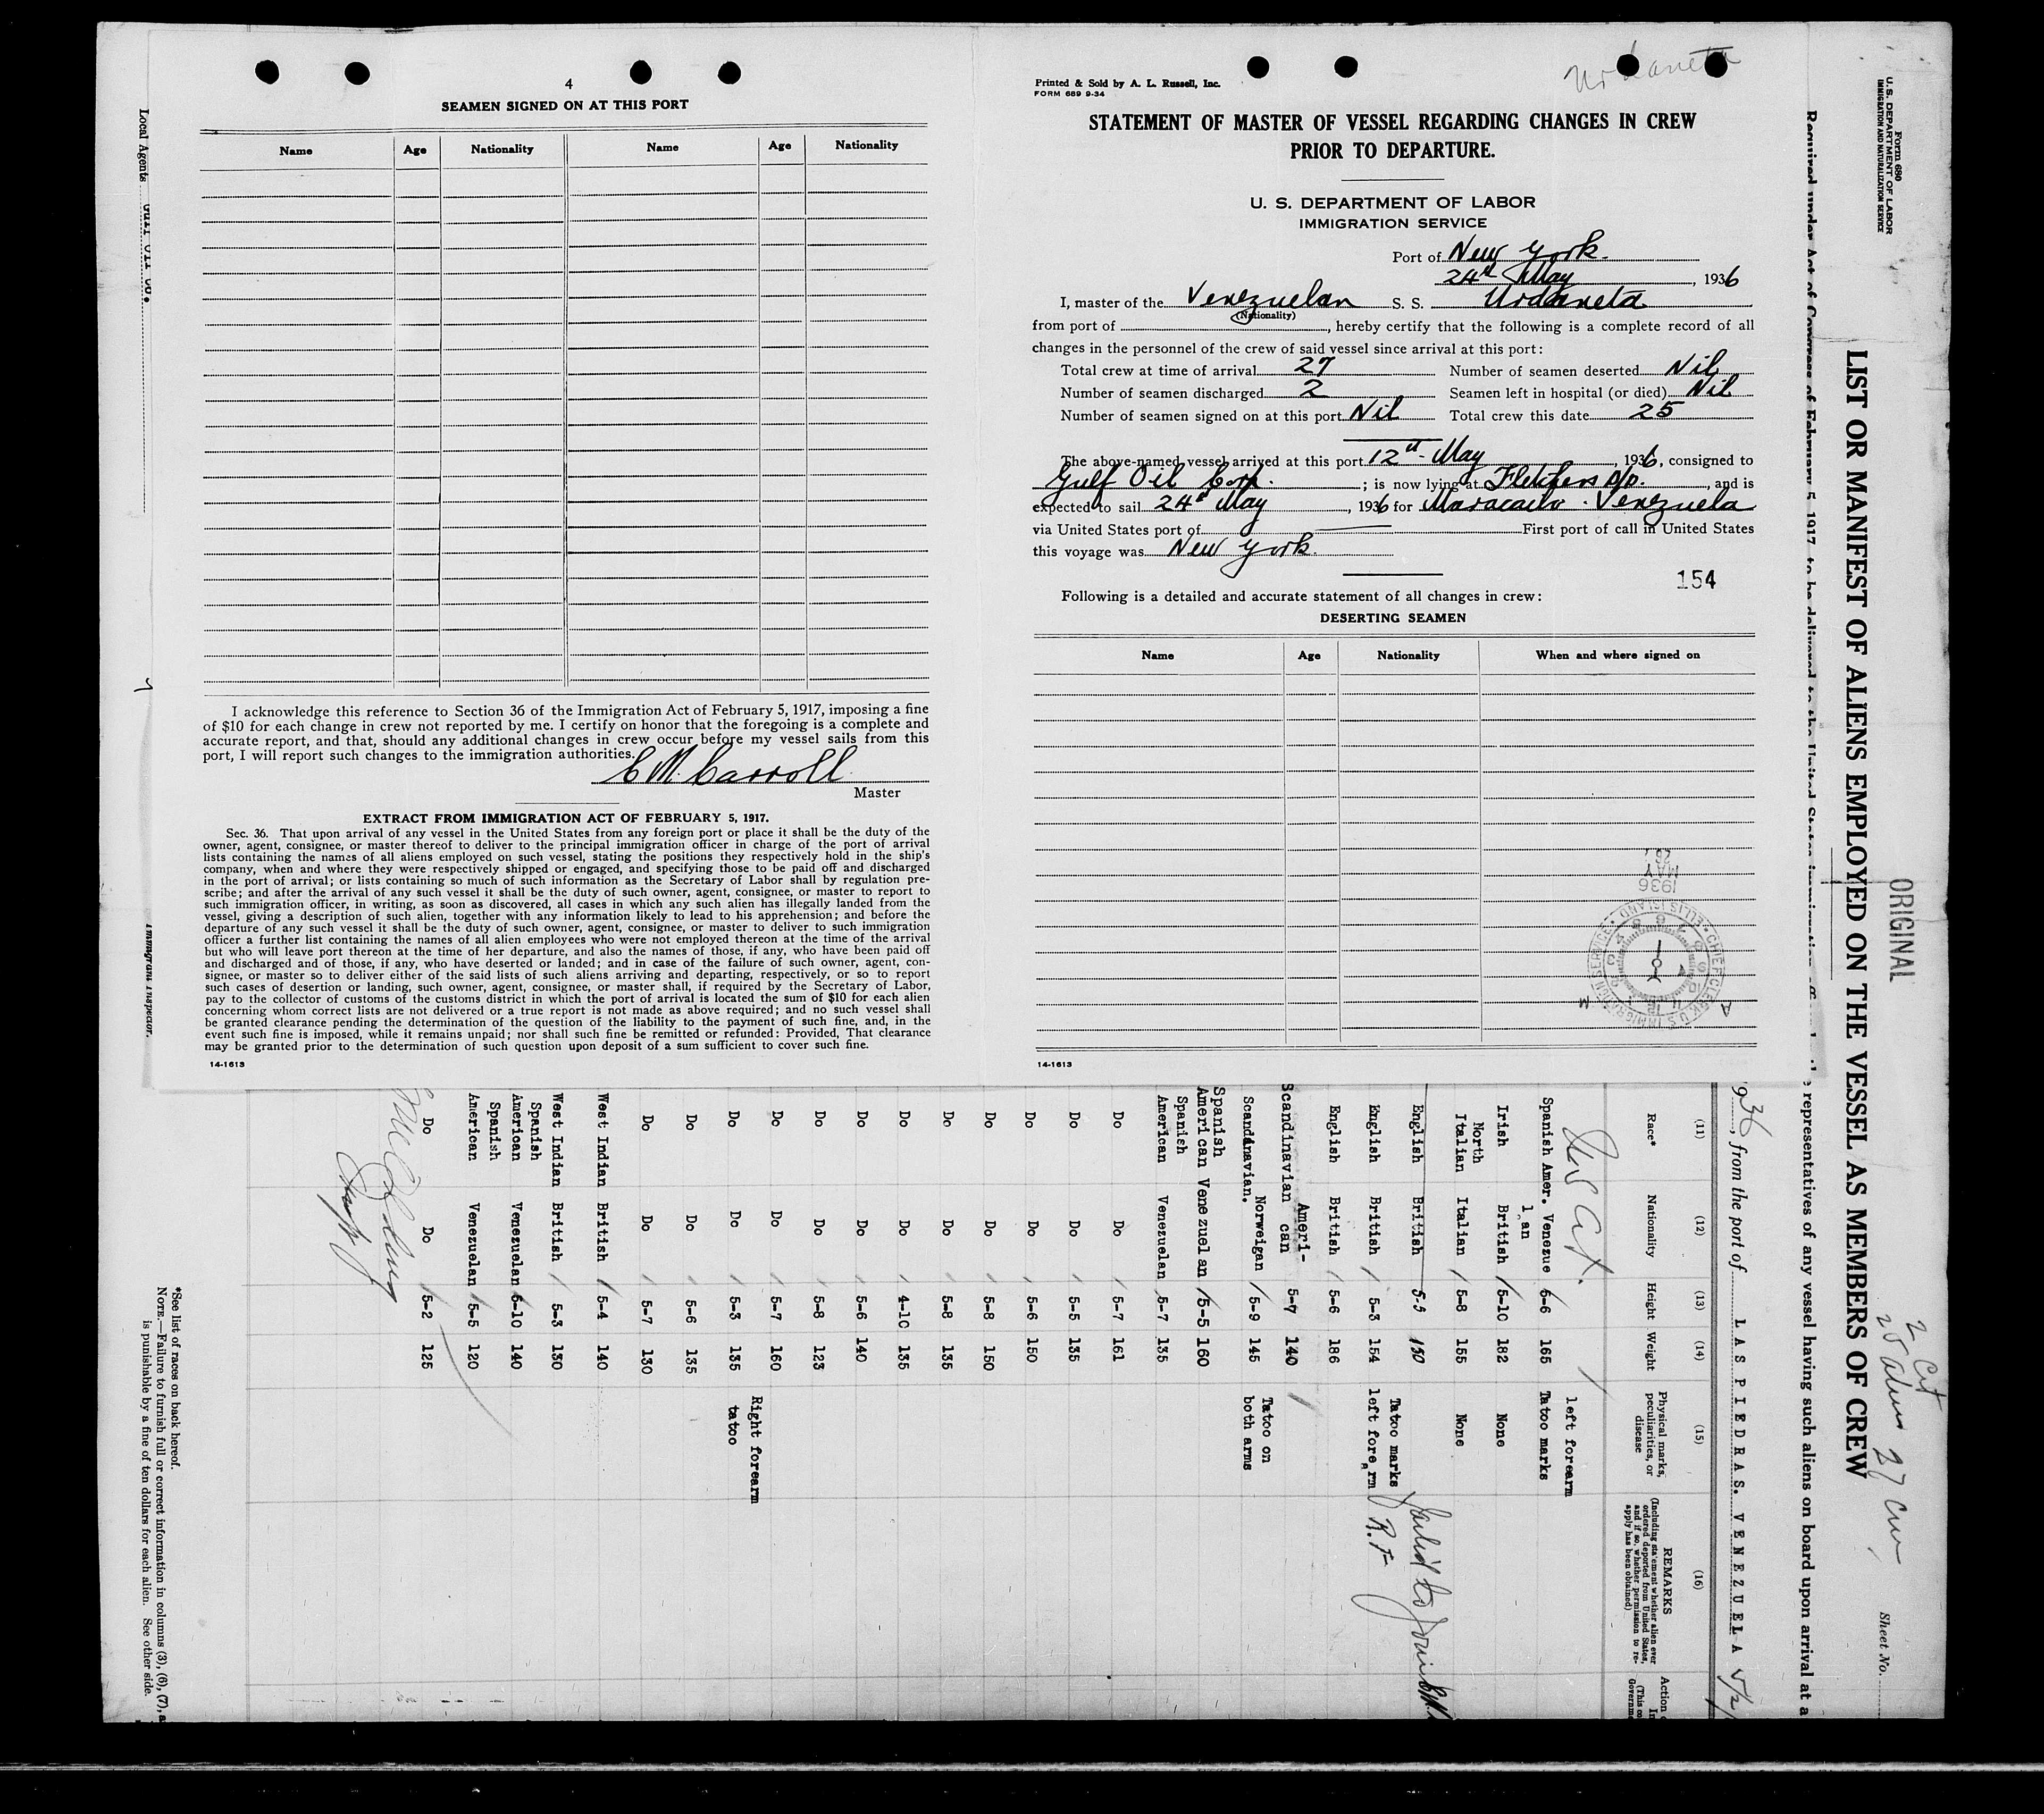 4
SEAMEN SIGNED ON AT THIS PORT
Name Age Nationality Name Age Nationality
I acknowledge this reference to Section 36 of the Immigration Act of February 5, 1917, imposing a fine
of $10 for each change in crew not reported by me. I certify on honor that the foregoing is a complete and
accurate report, and that, should any additional changes in crew occur before my vessel sails from this
port, I will report such changes to the immigration authorities.
C M. Carroll
Master
EXTRACT FROM IMMIGRATION ACT OF FEBRUARY 5, 1917.
Sec. 36. That upon arrival of any vessel in the United States from any foreign port or place it shall be the duty of the
owner, agent, consignee, or master thereof to deliver to the principal immigration officer in charge of the port of arrival
lists containing the names of all aliens employed on such vessel, stating the positions they respectively hold in the ship's
company, when and where they were respectively shipped or engaged, and specifying those to be paid off and discharged
in the port of arrival; or lists containing so much of such information as the Secretary of Labor shall by regulation pre-
scribe; and after the arrival of any such vessel it shall be the duty of such owner, agent, consignee, or master to report to
such immigration officer, in writing, as soon as discovered, all cases in which any such alien has illegally landed from the
vessel, giving a description of such alien, together with any information likely to lead to his apprehension; and before the
departure of any such vessel it shall be the duty of such owner, agent, consignee, or master to deliver to such immigration
officer a further list containing the names of all alien employees who were not employed thereon at the time of the arrival
but who will leave port thereon at the time of her departure, and also the names of those, if any, who have been paid off
and discharged and of those, if any, who have deserted or landed; and in case of the failure of such owner, agent, con-
signee, or master so to deliver either of the said lists of such aliens arriving and departing, respectively, or so to report
such cases of desertion or landing, such owner, agent, consignee, or master shall, if required by the Secretary of Labor,
pay to the collector of customs of the customs district in which the port of arrival is located the sum of $10 for each alien
concerning whom correct lists are not delivered or a true report is not made as above required; and no such vessel shall
be granted clearance pending the determination of the question of the liability to the payment of such fine, and, in the
event such fine is imposed, while it remains unpaid; nor shall such fine be remitted or refunded: Provided, That clearance
may be granted prior to the determination of such question upon deposit of a sum sufficient to cover such fine.
14-1613
Printed & Sold by A. L. Russell, Inc.
FORM 689 9-34
STATEMENT OF MASTER OF VESSEL REGARDING CHANGES IN CREW
PRIOR TO DEPARTURE.
U. S. DEPARTMENT OF LABOR
IMMIGRATION SERVICE
Port of New York.
24th May, 1936
I, master of the Venezuelan S. S. Urdaneta
(Nationality)
from port of , hereby certify that the following is a complete record of all
changes in the personnel of the crew of said vessel since arrival at this port:
Total crew at time of arrival 27 Number of seamen deserted Nil
Number of seamen discharged 2 Seamen left in hospital (or died) Nil
Number of seamen signed on at this port Nil Total crew this date 25
The above-named vessel arrived at this port 12th May, 1936, consigned to
Gulf Oil Corp. ; is now lying at Fletchers D/D. , and is
expected to sail 24th May, 1936 for Maracaibo - Venezuela
via United States port of First port of call in United States
this voyage was New York.
154
Following is a detailed and accurate statement of all changes in crew:
DESERTING SEAMEN
Name Age Nationality When and where signed on
1936
MAY
26
CHIEF CLERK U S IMMIGRATION SERVICE ELLIS ISLAND
A M
14-1613
Form 680
U. S. DEPARTMENT OF LABOR
IMMIGRATION AND NATURALIZATION SERVICE
ORIGINAL
2 Cit
25 aliens 27 crew
Sheet No.
LIST OR MANIFEST OF ALIENS EMPLOYED ON THE VESSEL AS MEMBERS OF CREW
Required under Act of Congress of February 5, 1917, to be delivered to the United States immigration
representatives of any vessel having such aliens on board upon arrival at a
1936, from the port of LAS PIEDRAS. VENEZUELA
(11) (12) (13) (14) (15) (16)
Race* Nationality Height Weight Physical marks, peculiarities, or disease REMARKS
(Including statement whether alien ever
ordered deported from United States,
and if so, whether permission to re-
apply has been obtained)
left forearm
Spanish Amer. Venezue 6-6 165 Tatoo marks
lan
Irish British 5-10 182 None
North
Italian Italian 5-8 155 None
English British 5-5 150 Failed to Join
English British 5-3 154 Tatoo marks left forearm
English British 5-6 186
Scandinavian Ameri-can 5-7 140
Scandanavian. Norweigan 5-9 145 Tatoo on both arms
Spanish
American Venezuelan 5-5 160
Spanish
American Venezuelan 5-7 135
Do Do 5-7 161
Do Do 5-5 135
Do Do 5-6 150
Do Do 5-8 150
Do Do 5-8 135
Do Do 4-10 135
Do Do 5-6 140
Do Do 5-8 123
Do Do 5-7 160
Do Do 5-3 135 Right forearm tatoo
Do Do 5-6 135
Do Do 5-7 130
West Indian British 5-4 140
West Indian British 5-3 130
Spanish
American Venezuelan 5-10 140
Spanish
American Venezuelan 5-5 120
Do Do 5-2 125
*See list of races on back hereof.
NOTE.—Failure to furnish full or correct information in columns (3), (6), (7),
is punishable by a fine of ten dollars for each alien. See other side.
Local Agents
Immigrant Inspector.